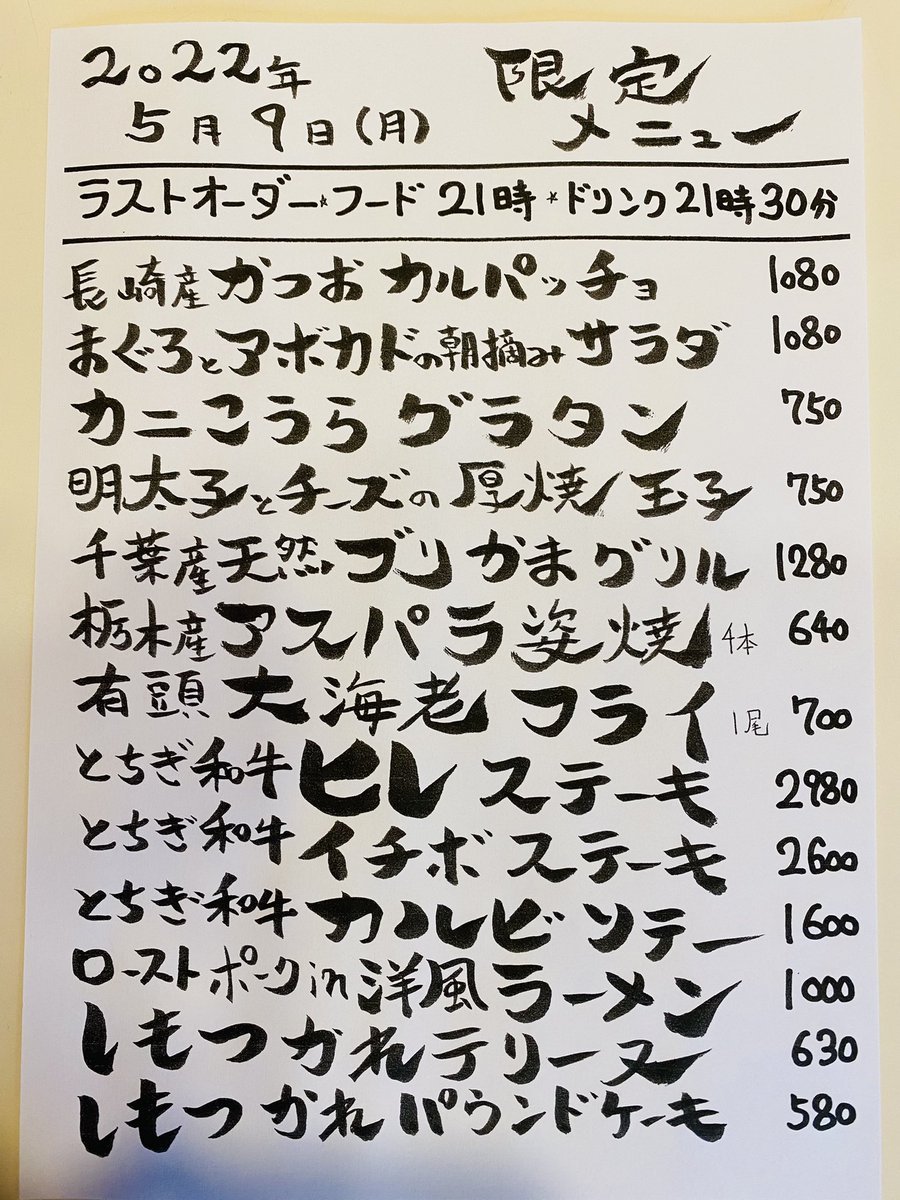 2022年
5月9日(月)
限定
メニュー
ラストオーダー★フード21時★ドリンク21時30分
長崎産かつおカルパッチョ 1080
まぐろとアボカドの朝摘みサラダ 1080
カニこうらグラタン 750
明太子とチーズの厚焼玉子 750
千葉産天然ブリかまグリル 1280
栃木産アスパラ姿焼 4本 640
有頭大海老フライ 1尾 700
とちぎ和牛ヒレステーキ 2980
とちぎ和牛イチボステーキ 2600
とちぎ和牛カルビソテー 1600
ローストポークin洋風ラーメン 1000
しもつかれテリーヌ 630
しもつかれパウンドケーキ 580